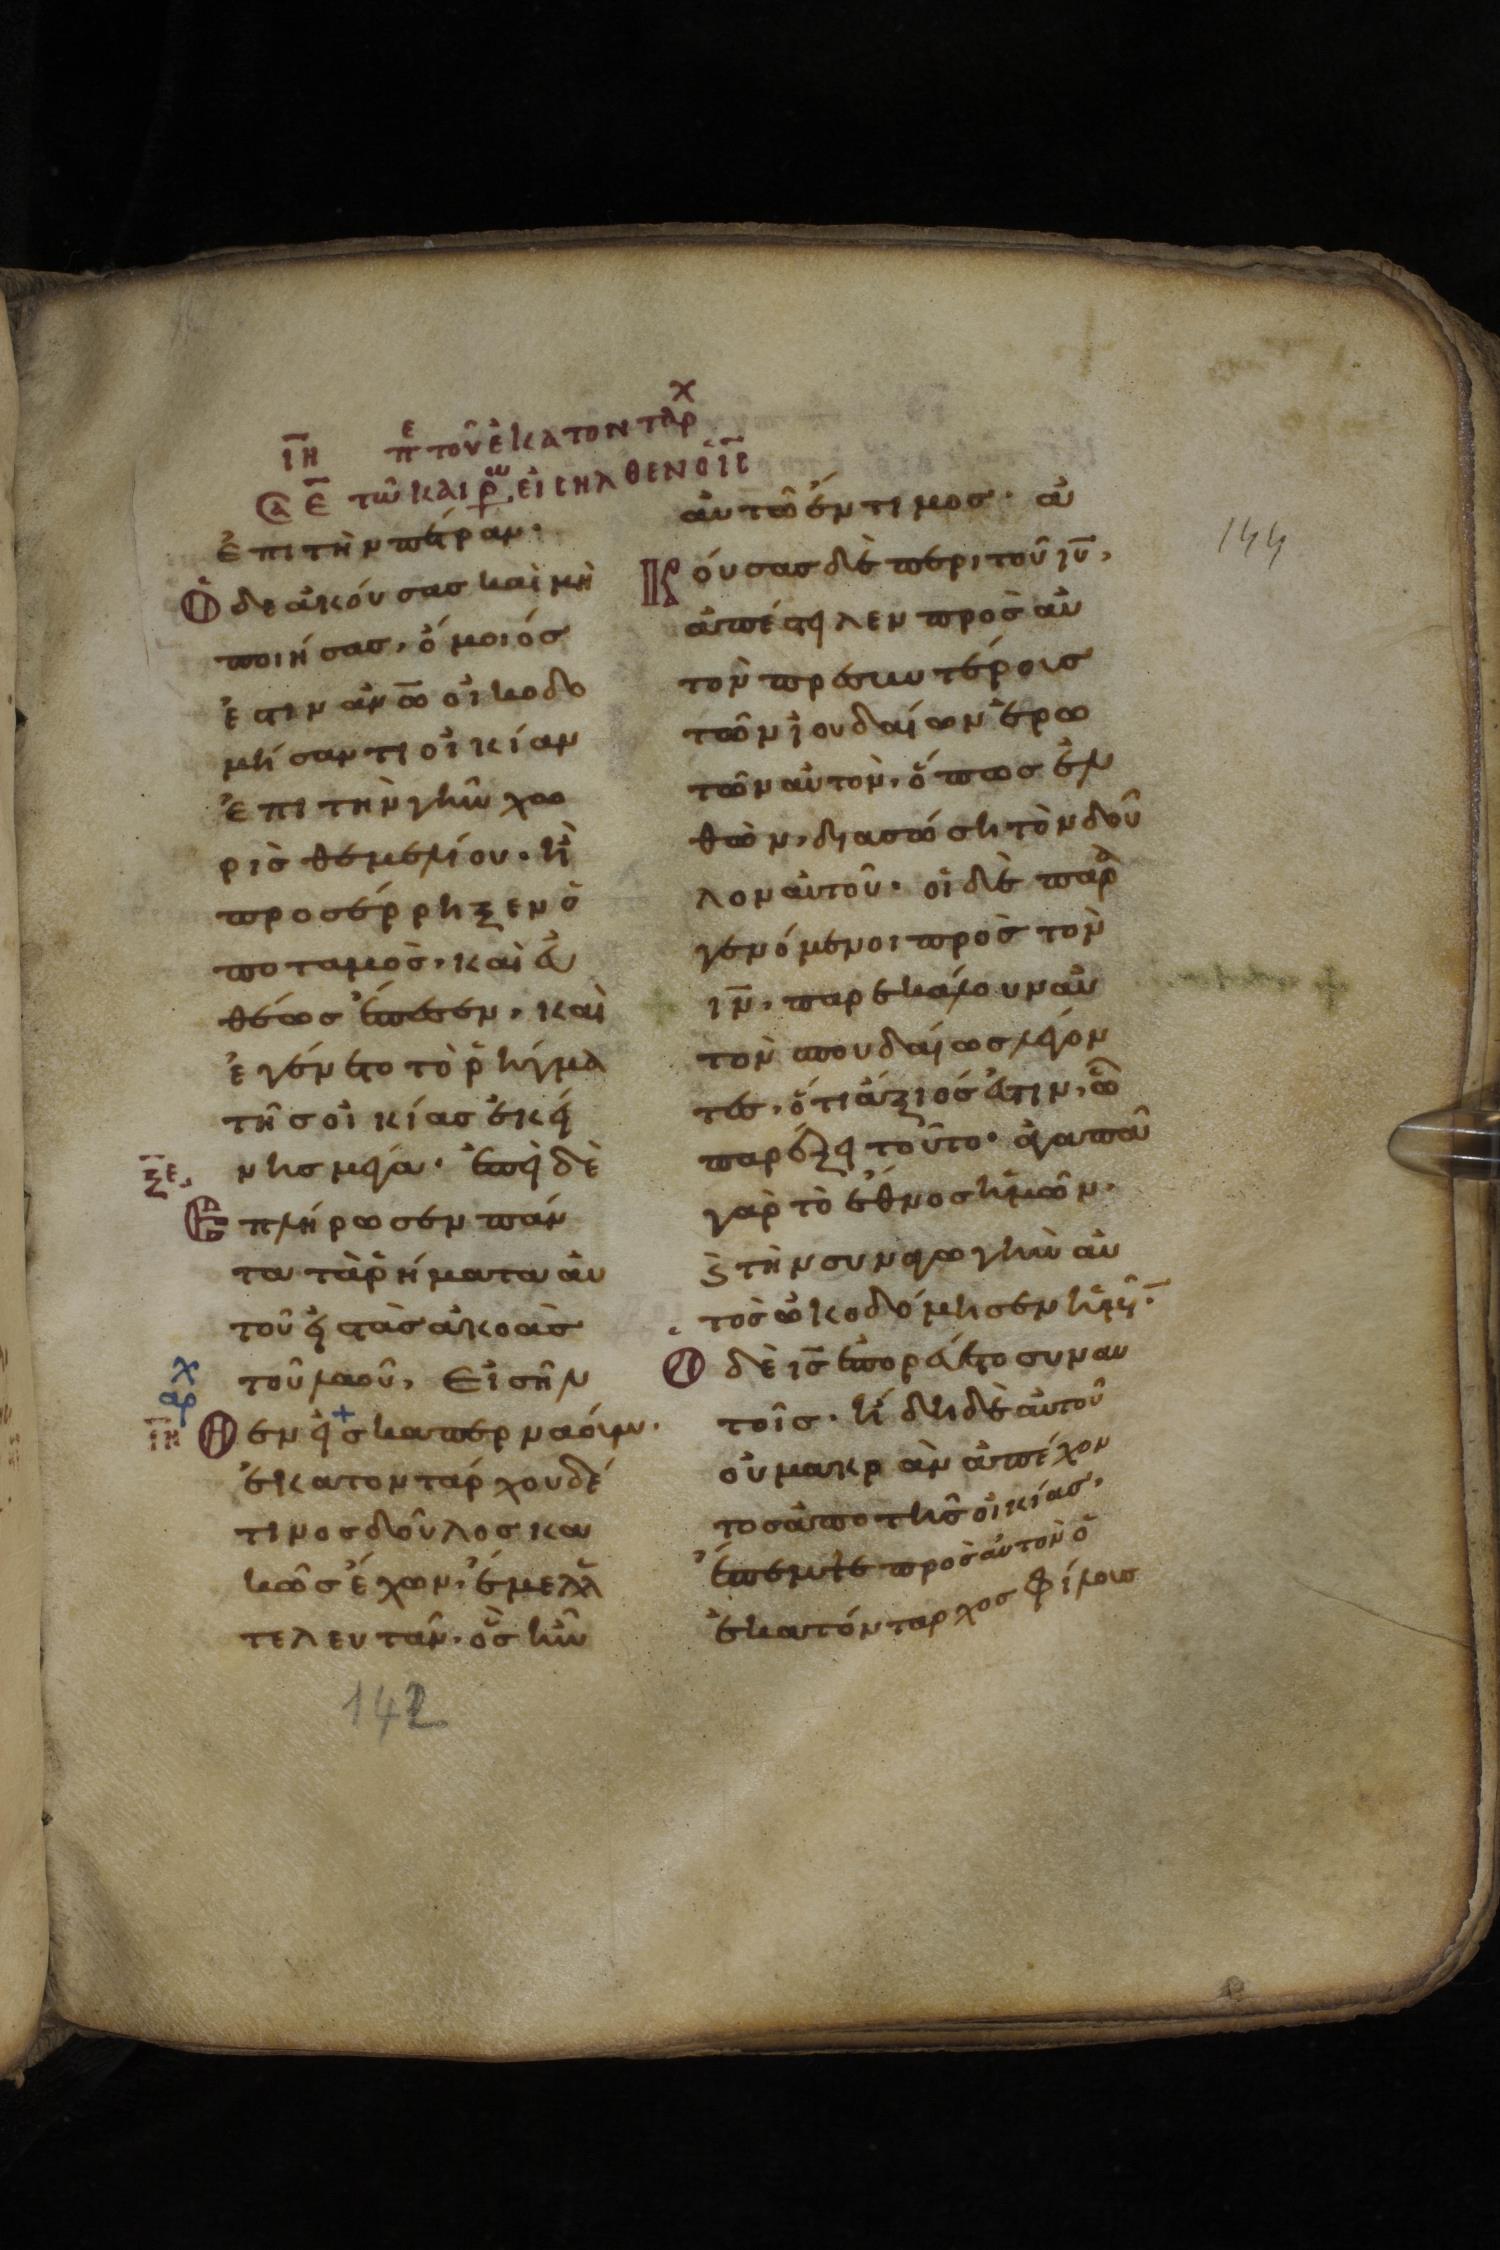 ιη περι του εκατονταρχ
Σα ε τω καιρω, εισηλθεν ο ις
ἐπι τὴν πέτραν·
Ὁ δε ἀκούσας καὶ μὴ
ποιήσας, ὅμοιός
ἐστιν ἀνω οἰκοδο
μήσαντι οἰκίαν
ἐπι τὴν γῆν χω
ρὶς θεμελίου· ἧ
προσέρρηξεν ὁ
ποταμὸς, καὶ εὐ
θέως ἔπεσεν, καὶ
ἐγένετο τὸ ῥῆγμα
τῆς οἰκίας ἐκεί
νης μέγα· ἐπεὶ δὲ
ξε
ἐπλήρωσεν πάν
τα τὰ ῥήματα αὐ
τοῦ εἰς τὰς ἀκοὰς
τοῦ λαοῦ, Εἰσῆλ
χ
αρ
ιη
Θεν εἰς καπερναούμ·
ἑκατοντάρχου δέ
τινος δοῦλος κα
κῶς ἔχων, ἔμελλε
τελευτᾶν, ὃς ἦν
αὐτῶ ἔντιμος· ἀ
Κούσας δὲ περι τοῦ ιυ,
ἀπέστειλεν πρὸς αὐ
τὸν πρεσβυτέρους
τῶν ἰουδαίων ἐρω
τῶν αὐτὸν, ὅπως ἐλ
θὼν, διασώση τὸν δοῦ
λον αὐτοῦ· οἱ δὲ παρα
γενόμενοι πρὸς τὸν
ιν, παρεκάλουν αὐ
τὸν σπουδαίως λέγον
τες, ὅτι ἄξιός ἐστιν, ὧ
παρέξει τοῦτο· ἀγαπᾶ
γὰρ τὸ ἔθνος ἡμῶν·
ϗ τὴν συναγωγὴν αὐ
τὸς ὠκοδόμησεν ἡμῖν·
Ο δὲ ις ἐπορεύετο συν αυ
τοῖς· ἤδη δὲ αὐτοῦ
οὐ μακρὰν ἀπέχον
τος ἀπο τῆς οἰκίας,
ἔπεμψε πρὸς αὐτὸν ὁ
ἑκατόνταρχος φίλους
144
142